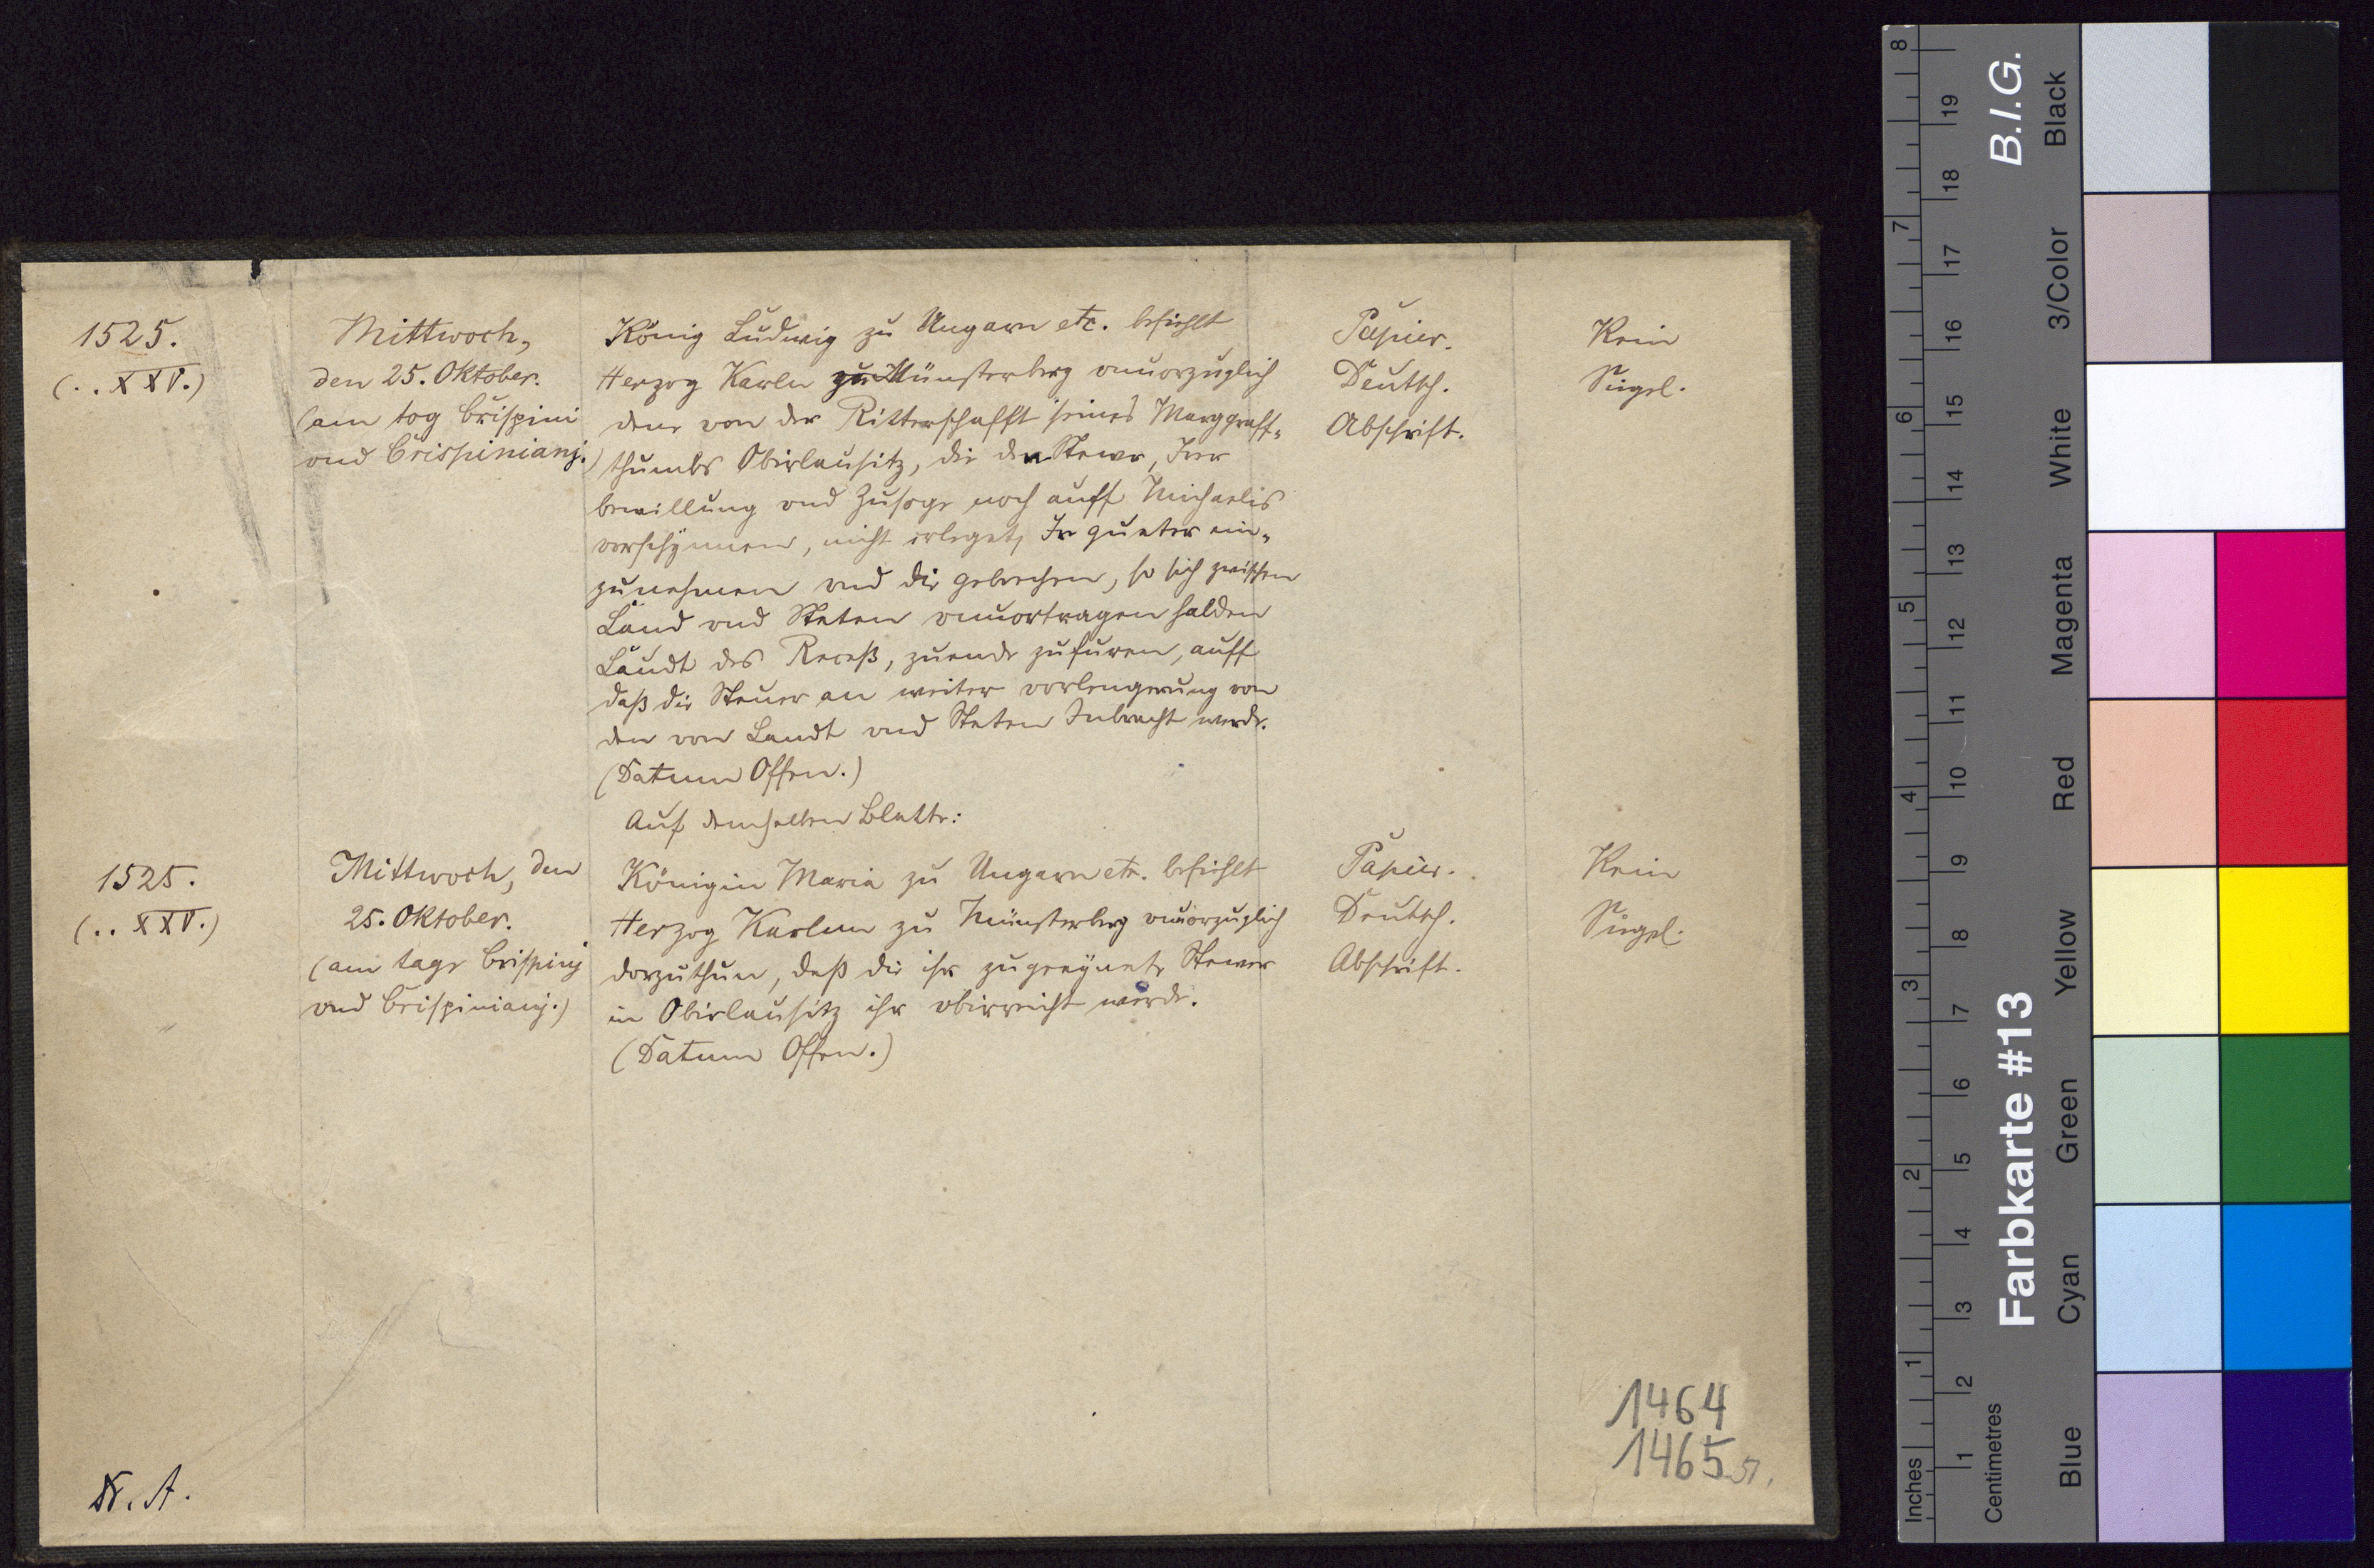 1525.
(..XXV.)
Mittwoch,
den 25. Oktober.
(am tog Crispini
vnd Crispinianj.)
König Ludwig zu Ungarn etc. befiehlt
Herzog Karln zu Münsterberg vnuorzuglich
dene von der Ritterschafft seines Marggraff-
thumbs Obirlausitz, die den Stewr, Irer
bewillung vnd Zusoge noch auff Michaelis
vorschynnen, nicht erleget, Ir gueter ein-
zunehmen vnd die gebrechen, so sich zwischen
Land vnd Steten vnuortragen halden
Laudt des Receß, zuende zufuren, auff
daß die Steuer an weiter vorlengerung von
den von Landt vnd Steten Inbracht werde.
(Datum Offen.)
Papier.
Deutsch.
Abschrift.
Kein
Siegel.
Auf demselben Blatte:
1525.
(..XXV.)
Mittwoch, den
25. Oktober.
(am tage Crispinj
vnd Crispinianj.)
Königin Maria zu Ungarn etc. befiehlt
Herzog Karlen zu Münsterberg vnuorzuglich
dorzuthun, daß die ihr zugeeynete Stewer
in Obirlausitz ihr obirreicht werde.
(Datum Offen.)
Papier.
Deutsch.
Abschrift.
Kein
Siegel.
1464
1465
A.
Inches
1
2
3
4
5
6
7
8
Centimetres
1
2
3
4
5
6
7
8
9
10
11
12
13
14
15
16
17
18
19
Farbkarte #13
B.I.G.
Blue
Cyan
Green
Yellow
Red
Magenta
White
3/Color
Black